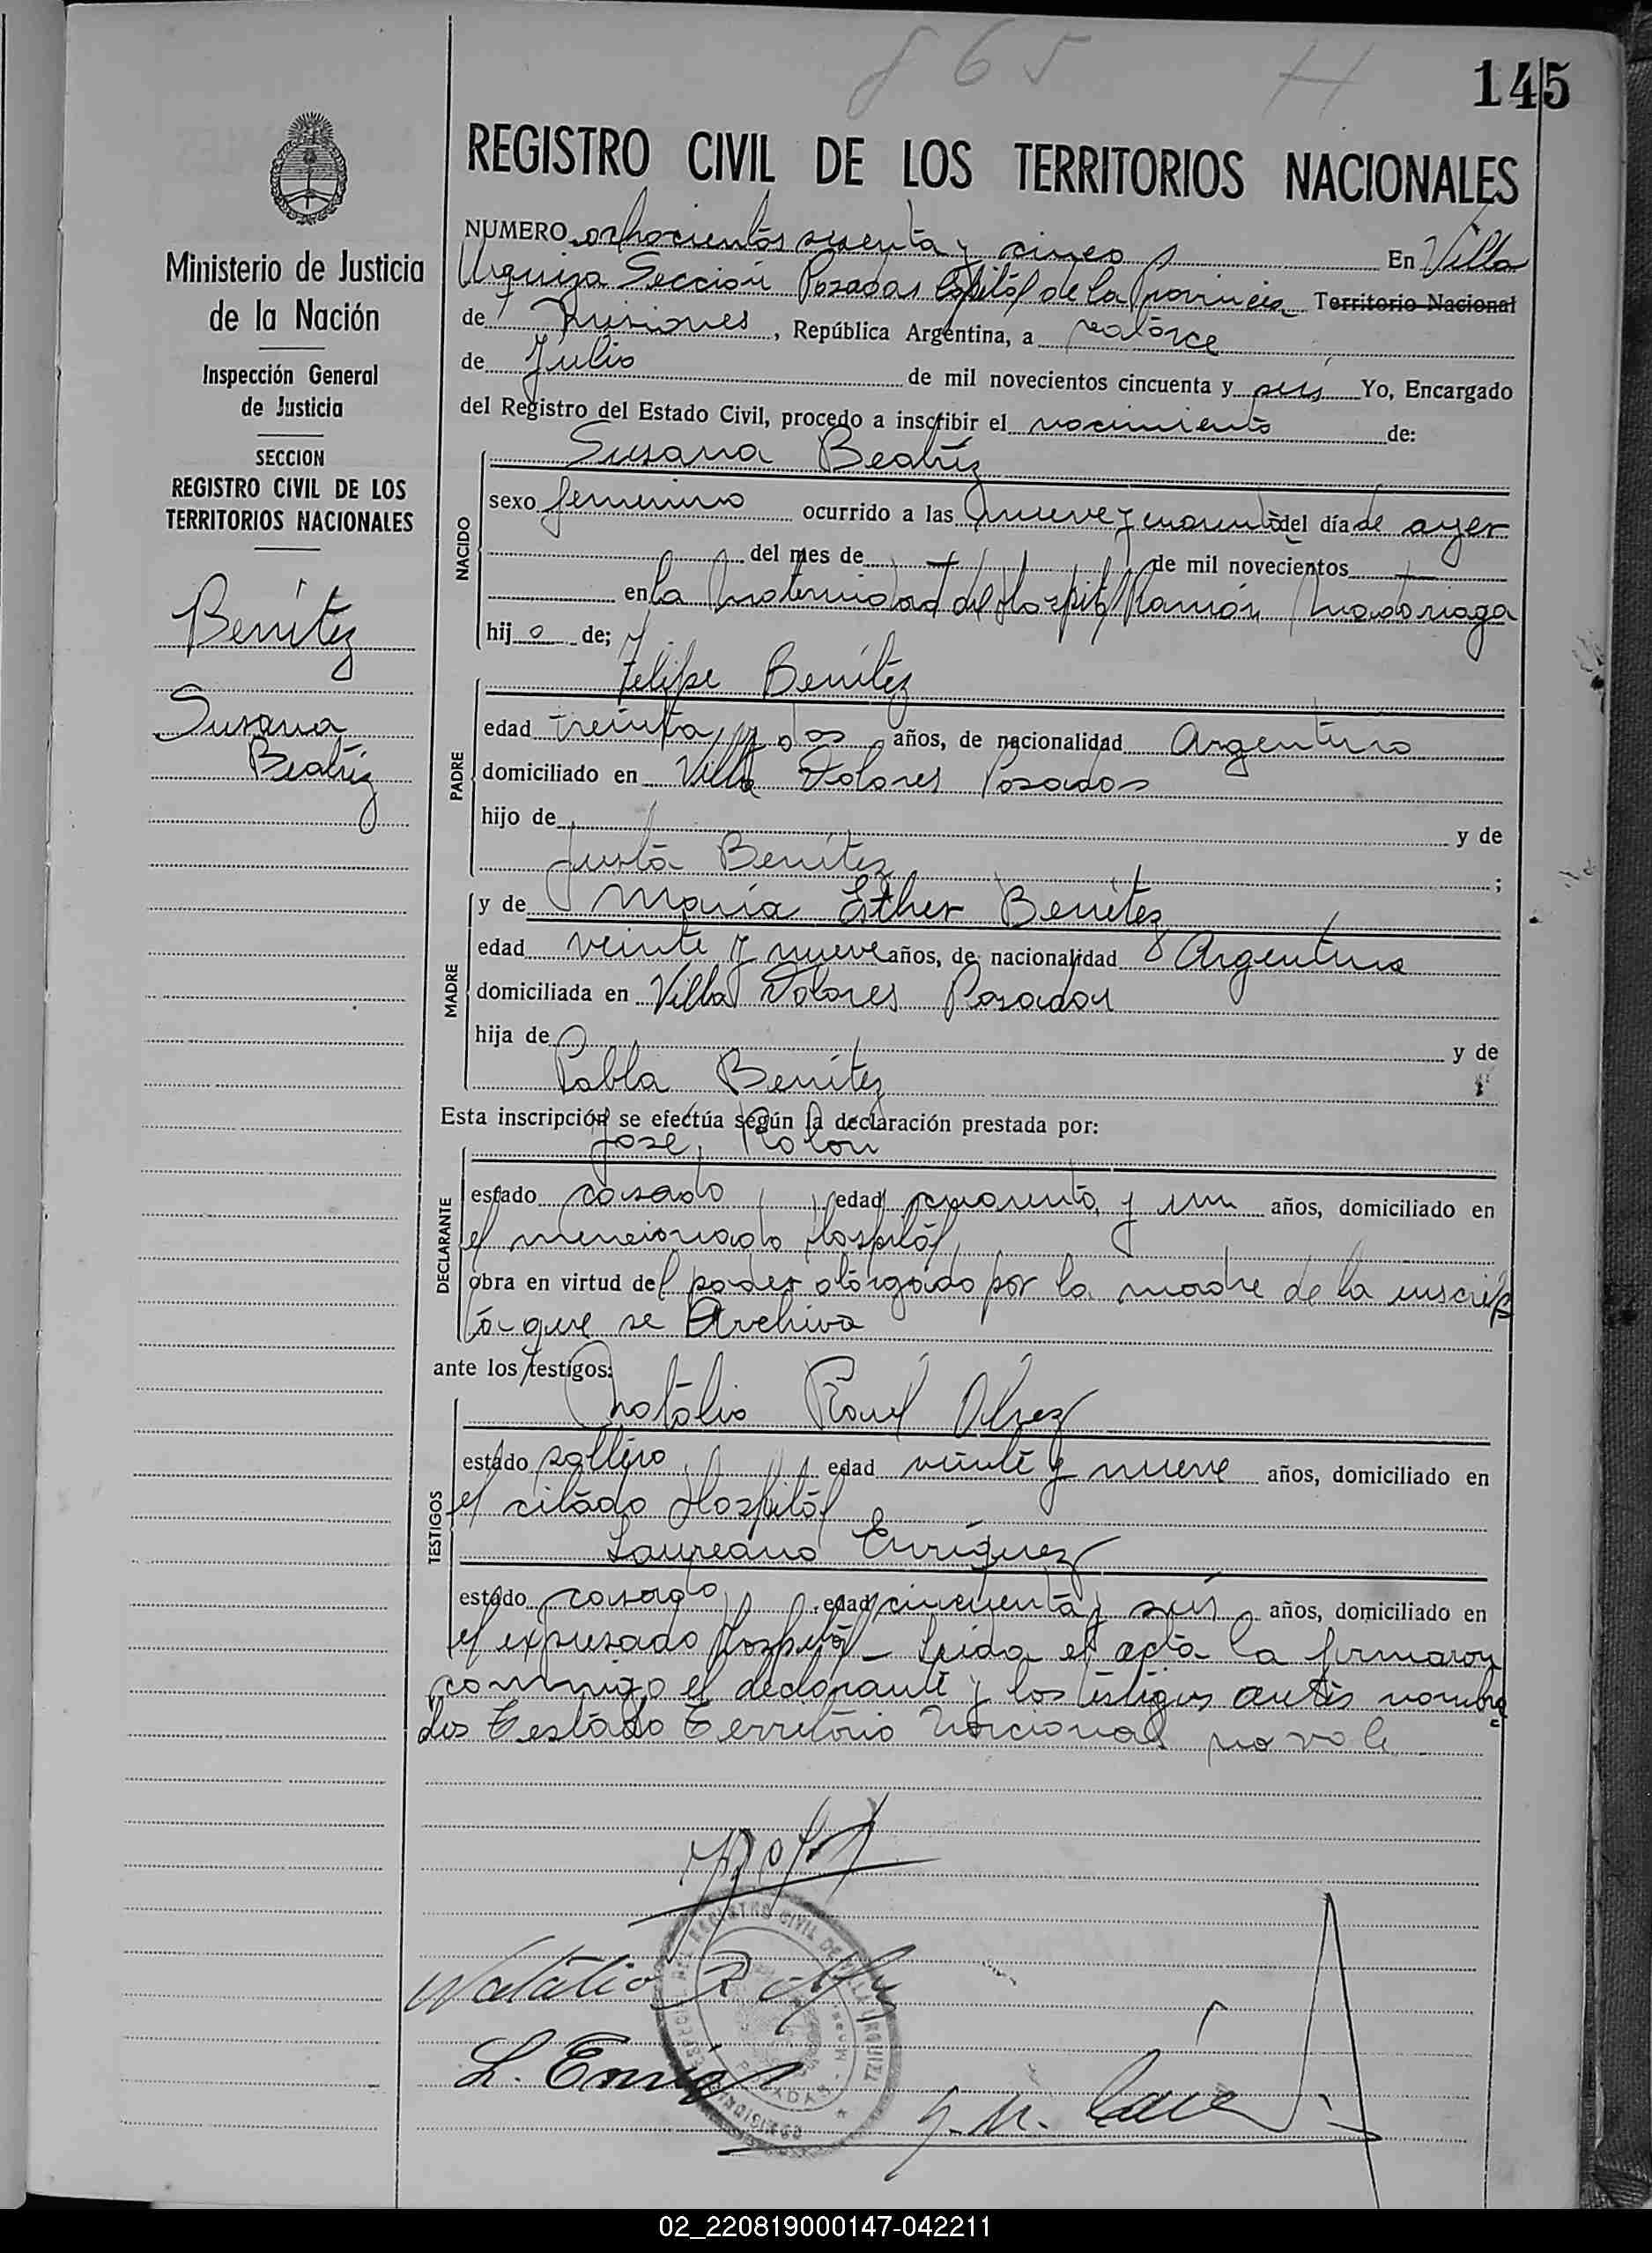 865 H
145
REGISTRO CIVIL DE LOS TERRITORIOS NACIONALES
Ministerio de Justicia
de la Nación
Inspección General
de Justicia
SECCION
REGISTRO CIVIL DE LOS
TERRITORIOS NACIONALES
Benítez
Susana
Beatríz
NUMERO ochocientos sesenta y cinco En Villa
Urquiza Sección Posadas Capital de la Provincia Territorio Nacional
de Misiones, República Argentina, a catorce
de Julio de mil novecientos cincuenta y seis Yo, Encargado
del Registro del Estado Civil, procedo a inscribir el nacimiento de:
NACIDO
Susana Beatríz
sexo femenino ocurrido a las nueve y cuarenta del día de ayer
del mes de — de mil novecientos —
en la Maternidad del Hospital Ramón Madariaga
hij a de;
PADRE
Felipe Benítez
edad treinta y dos años, de nacionalidad Argentino
domiciliado en Villa Dolores Posadas
hijo de y de
Justa Benítez ;
MADRE
y de María Esther Benítez
edad veinte y nueve años, de nacionalidad Argentina
domiciliada en Villa Dolores Posadas
hija de y de
Pabla Benítez
Esta inscripción se efectúa según la declaración prestada por:
DECLARANTE
José Rolon
estado casado edad cuarenta y un años, domiciliado en
el mencionado Hospital
obra en virtud del poder otorgado por la madre de la inscrip
ta que se Archiva
ante los testigos:
TESTIGOS
Natalio Raul
estado soltero edad veinte y nueve años, domiciliado en
el citado Hospital
Laureano Enriquez
estado casado edad cincuenta y seis años, domiciliado en
el expresado Hospital — Leida el acta la firmaron
conmigo el declarante y los testigos antes nombra
dos Testado Territorio Nacional no vale
Natalio R
L. Enriq
REGISTRO CIVIL DE VILLA URQUIZA
POSADAS
02_220819000147-042211